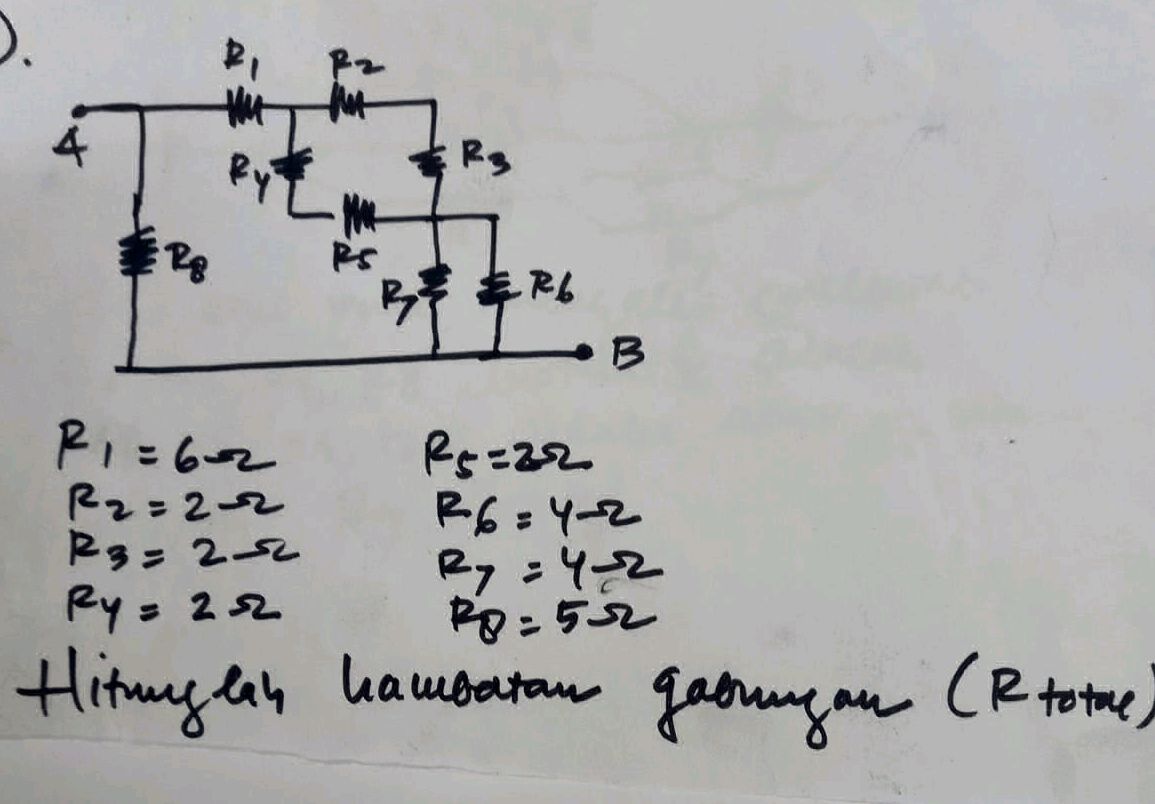 ).
R1 R2
A
R4 R3
R8 R5
R7 R6
B
R1 = 6Ω R5 = 2Ω
R2 = 2Ω R6 = 4Ω
R3 = 2Ω R7 = 4Ω
R4 = 2Ω R8 = 5Ω
Hitunglah hambatan gabungan (R total)